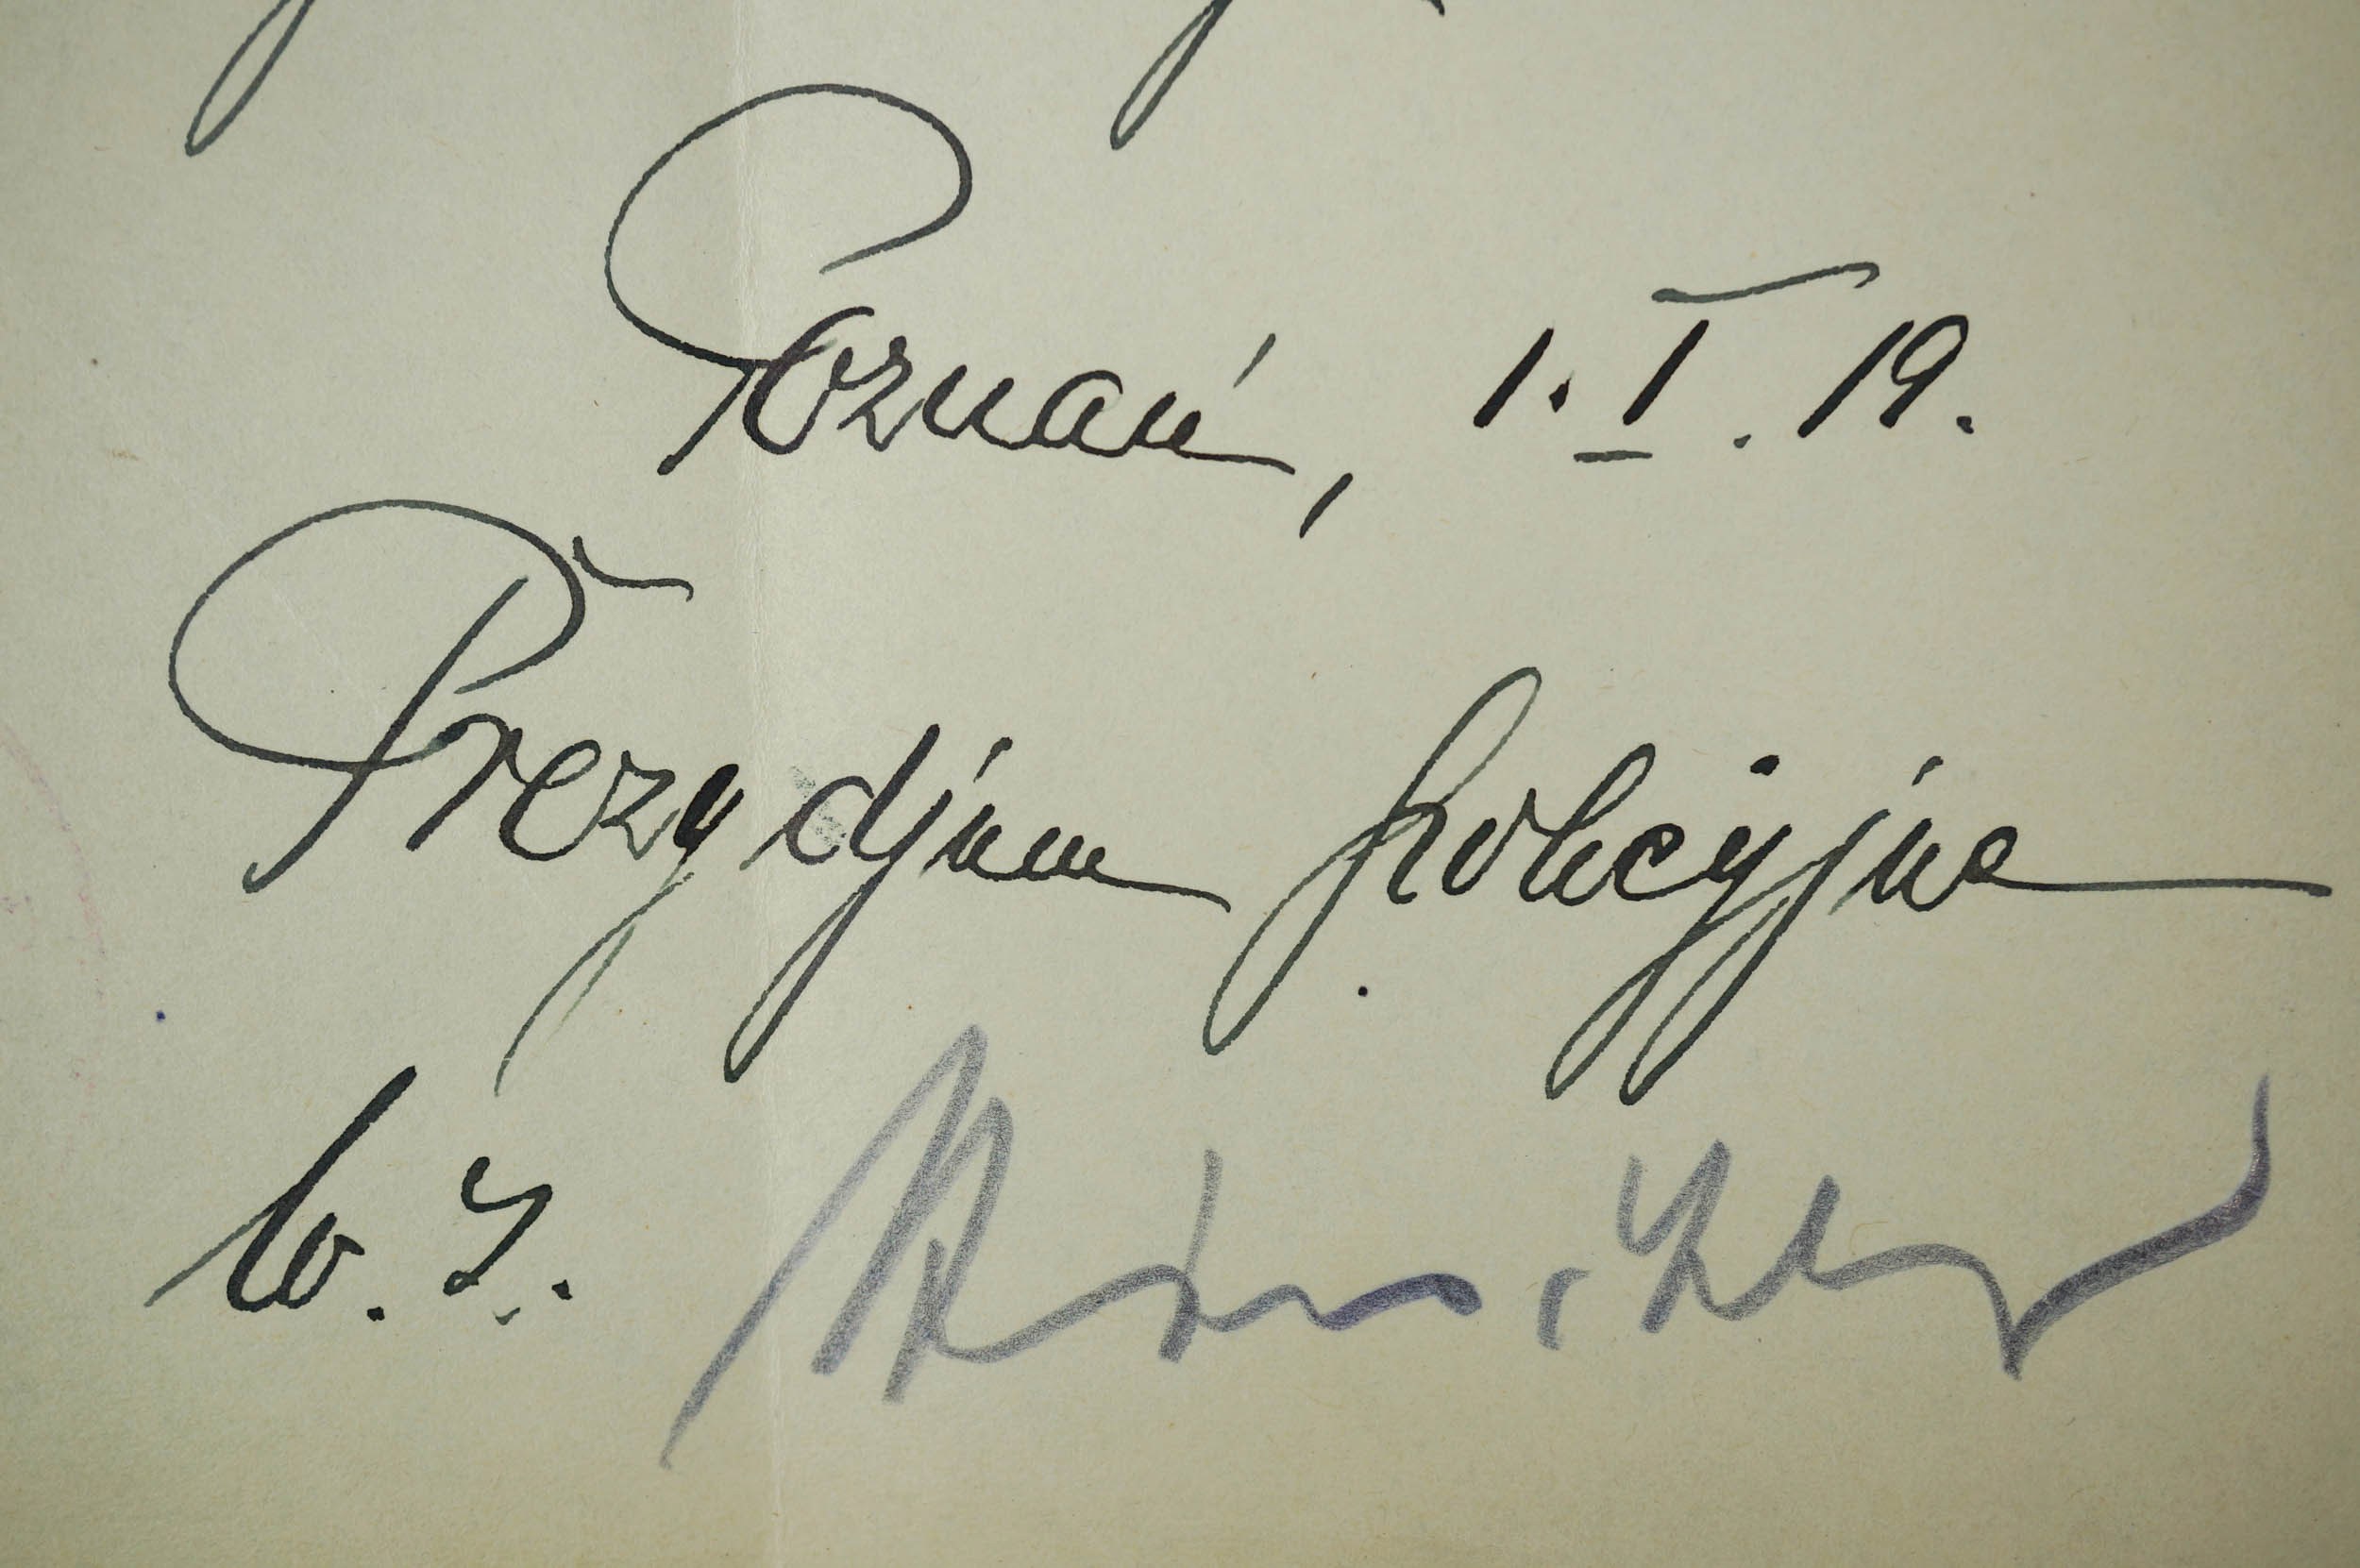 Poznań, 1. I. 19.
Prezydjum policyjne